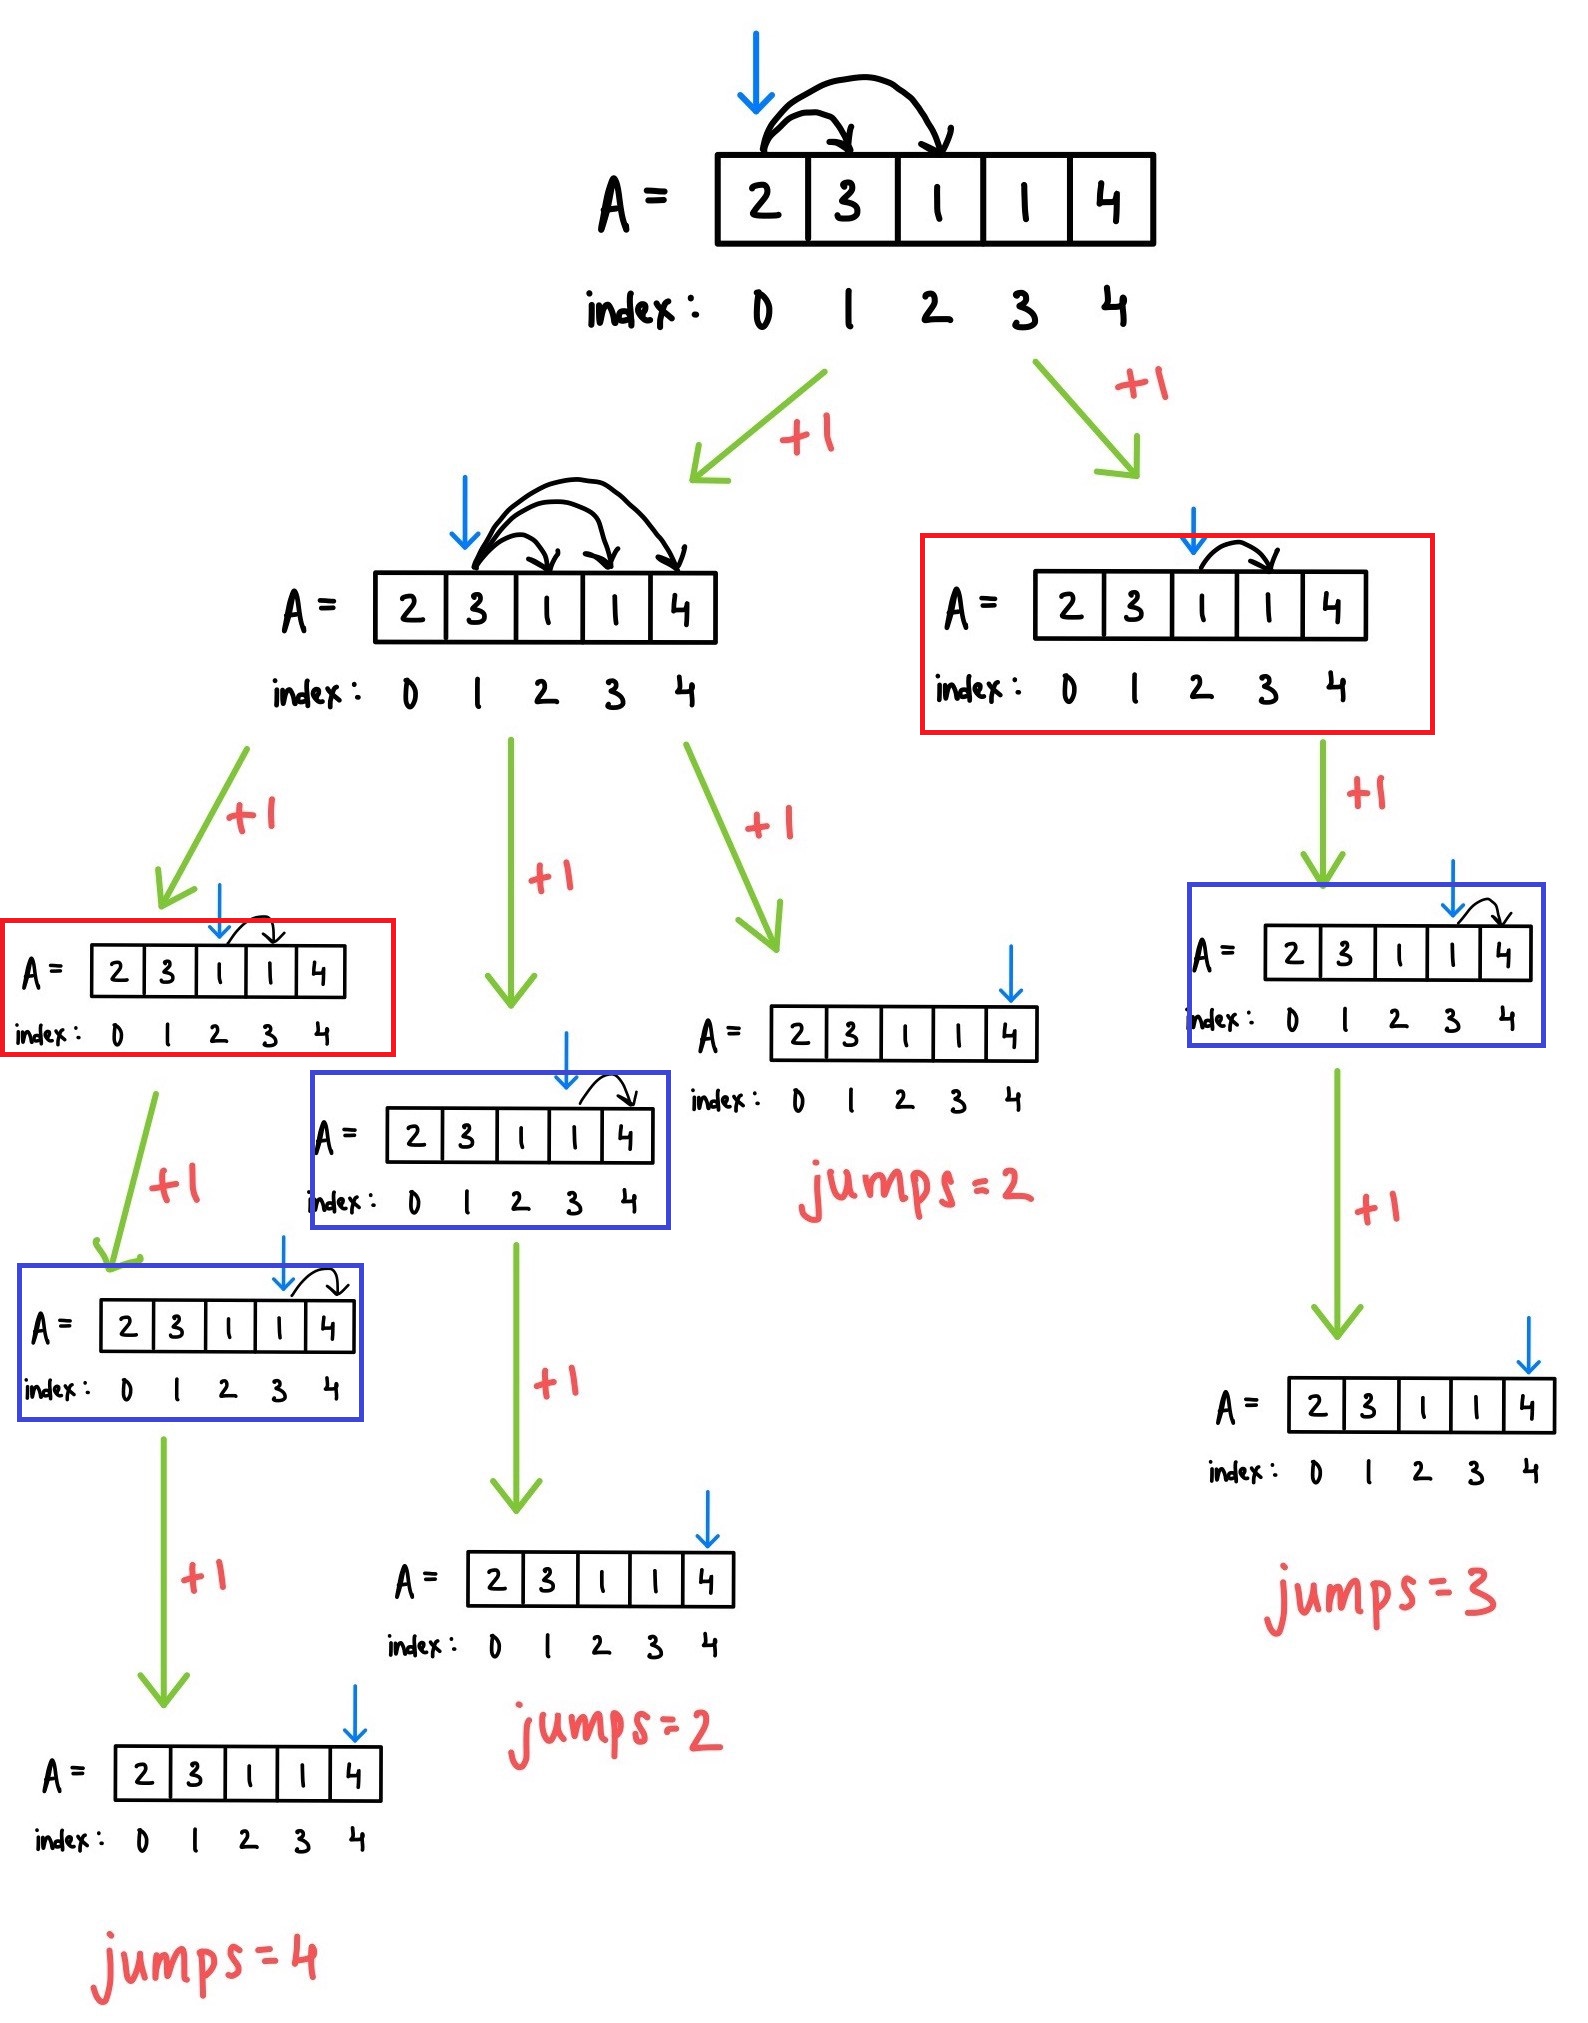 A = 2 3 1 1 4
index: 0 1 2 3 4
+1
+1
A = 2 3 1 1 4
index: 0 1 2 3 4
A = 2 3 1 1 4
index: 0 1 2 3 4
+1
+1
+1
+1
A = 2 3 1 1 4
index: 0 1 2 3 4
A = 2 3 1 1 4
index: 0 1 2 3 4
A = 2 3 1 1 4
index: 0 1 2 3 4
jumps=2
A = 2 3 1 1 4
index: 0 1 2 3 4
+1
+1
A = 2 3 1 1 4
index: 0 1 2 3 4
+1
A = 2 3 1 1 4
index: 0 1 2 3 4
jumps=3
+1
A = 2 3 1 1 4
index: 0 1 2 3 4
jumps=2
A = 2 3 1 1 4
index: 0 1 2 3 4
jumps=4